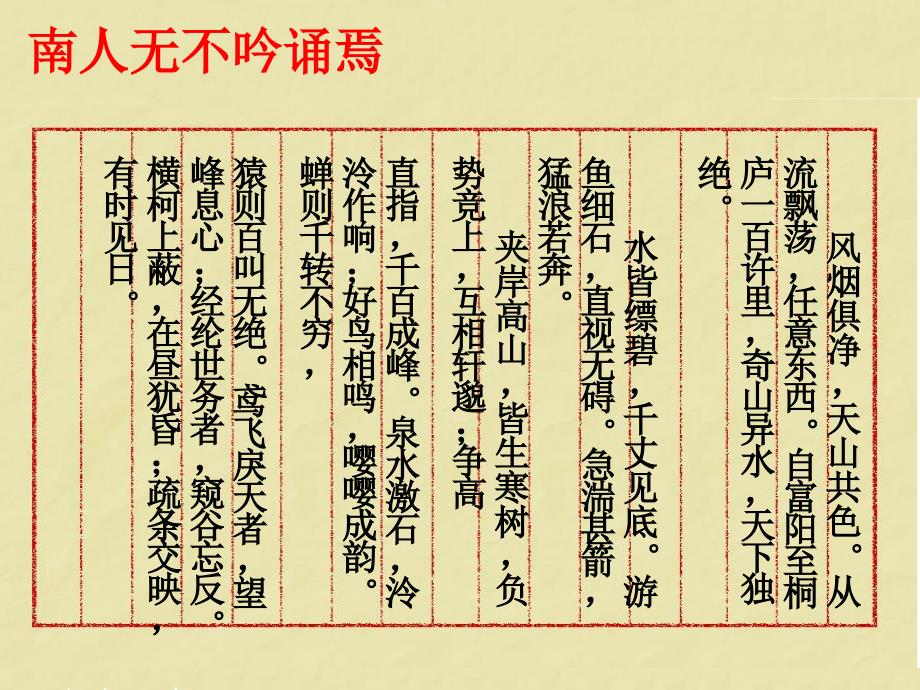 南人无不吟诵焉
风烟俱净，天山共色。从
流飘荡，任意东西。自富阳至桐
庐一百许里，奇山异水，天下独
绝。
水皆缥碧，千丈见底。游
鱼细石，直视无碍。急湍甚箭，
猛浪若奔。
夹岸高山，皆生寒树，负
势竞上，互相轩邈；争高
直指，千百成峰。泉水激石，泠
泠作响；好鸟相鸣，嘤嘤成韵。
蝉则千转不穷，
猿则百叫无绝。鸢飞戾天者，望
峰息心；经纶世务者，窥谷忘反。
横柯上蔽，在昼犹昏；疏条交映，
有时见日。